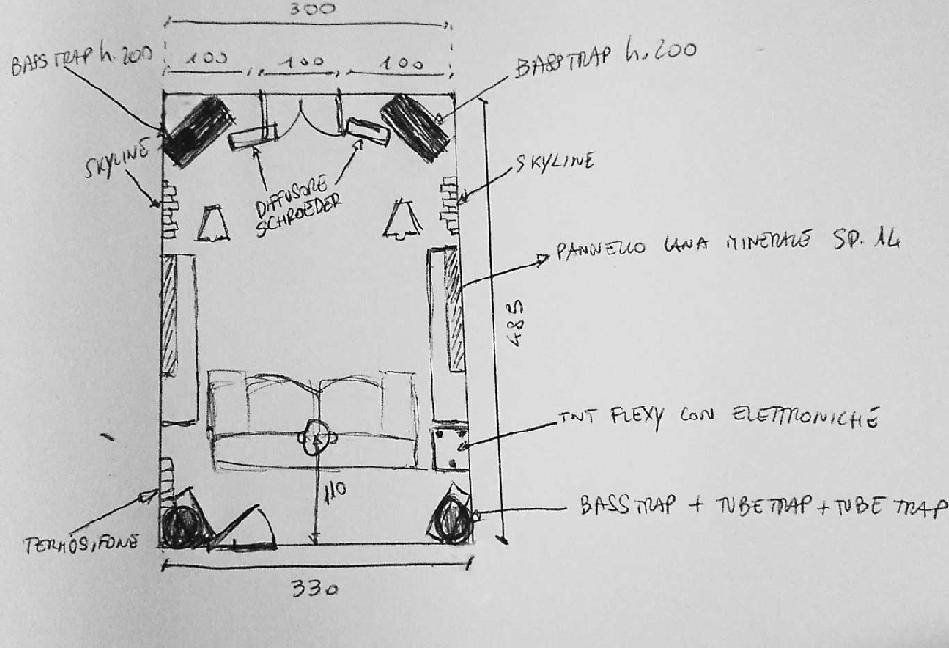 300
BASSTRAP h.200
100
100
100
BASSTRAP h.200
SKYLINE
SKYLINE
DIFFUSORE
SCHROEDER
PANNELLO LANA MINERALE SP. 14
485
TNT FLEXY CON ELETTRONICHE
110
BASSTRAP + TUBETRAP + TUBE TRAP
TERMOSIFONE
330